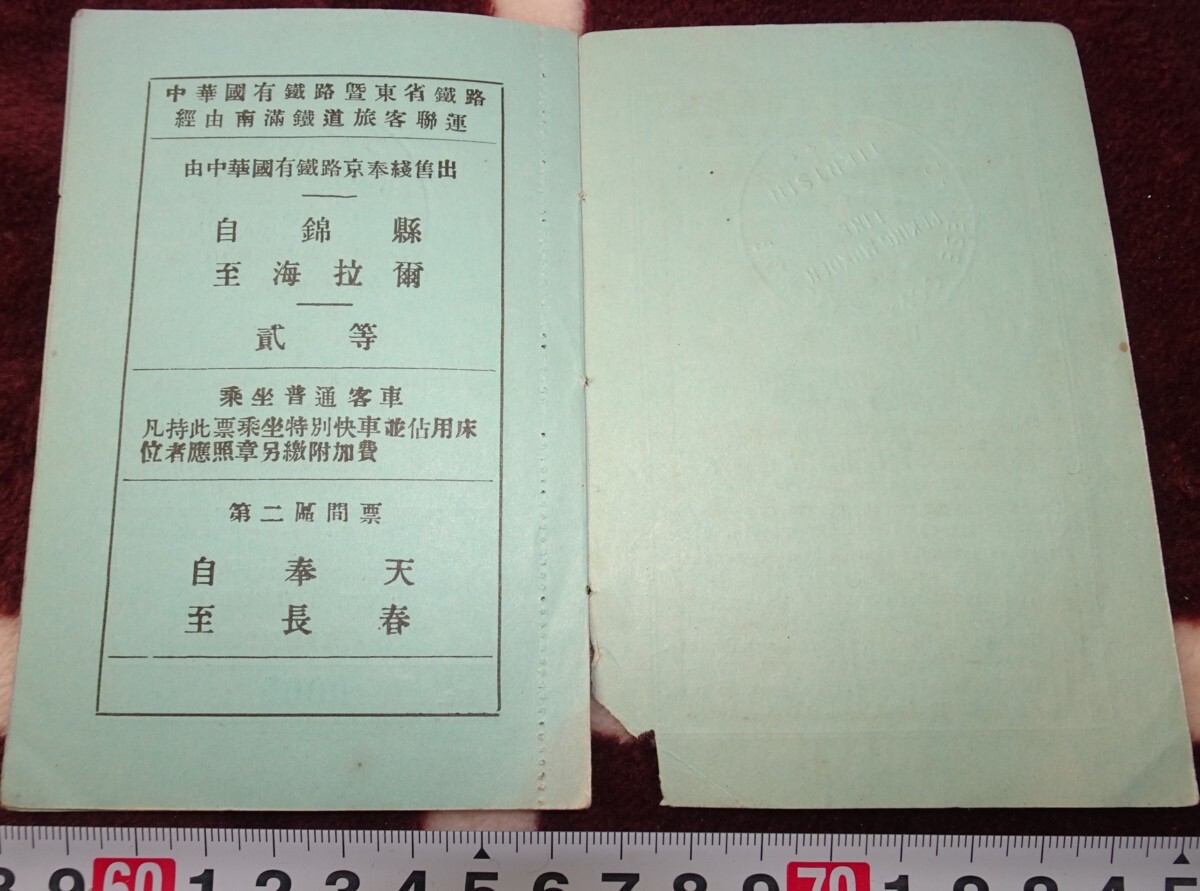 中華國有鐵路暨東省鐵路
經由南滿鐵道旅客聯運
由中華國有鐵路京奉綫售出
自錦縣
至海拉爾
貳等
乘坐普通客車
凡持此票乘坐特別快車並佔用床
位者應照章另繳附加費
第二區間票
自奉天
至長春
8 9 60 1 2 3 4 5 6 7 8 9 70 1 2 3 4 5